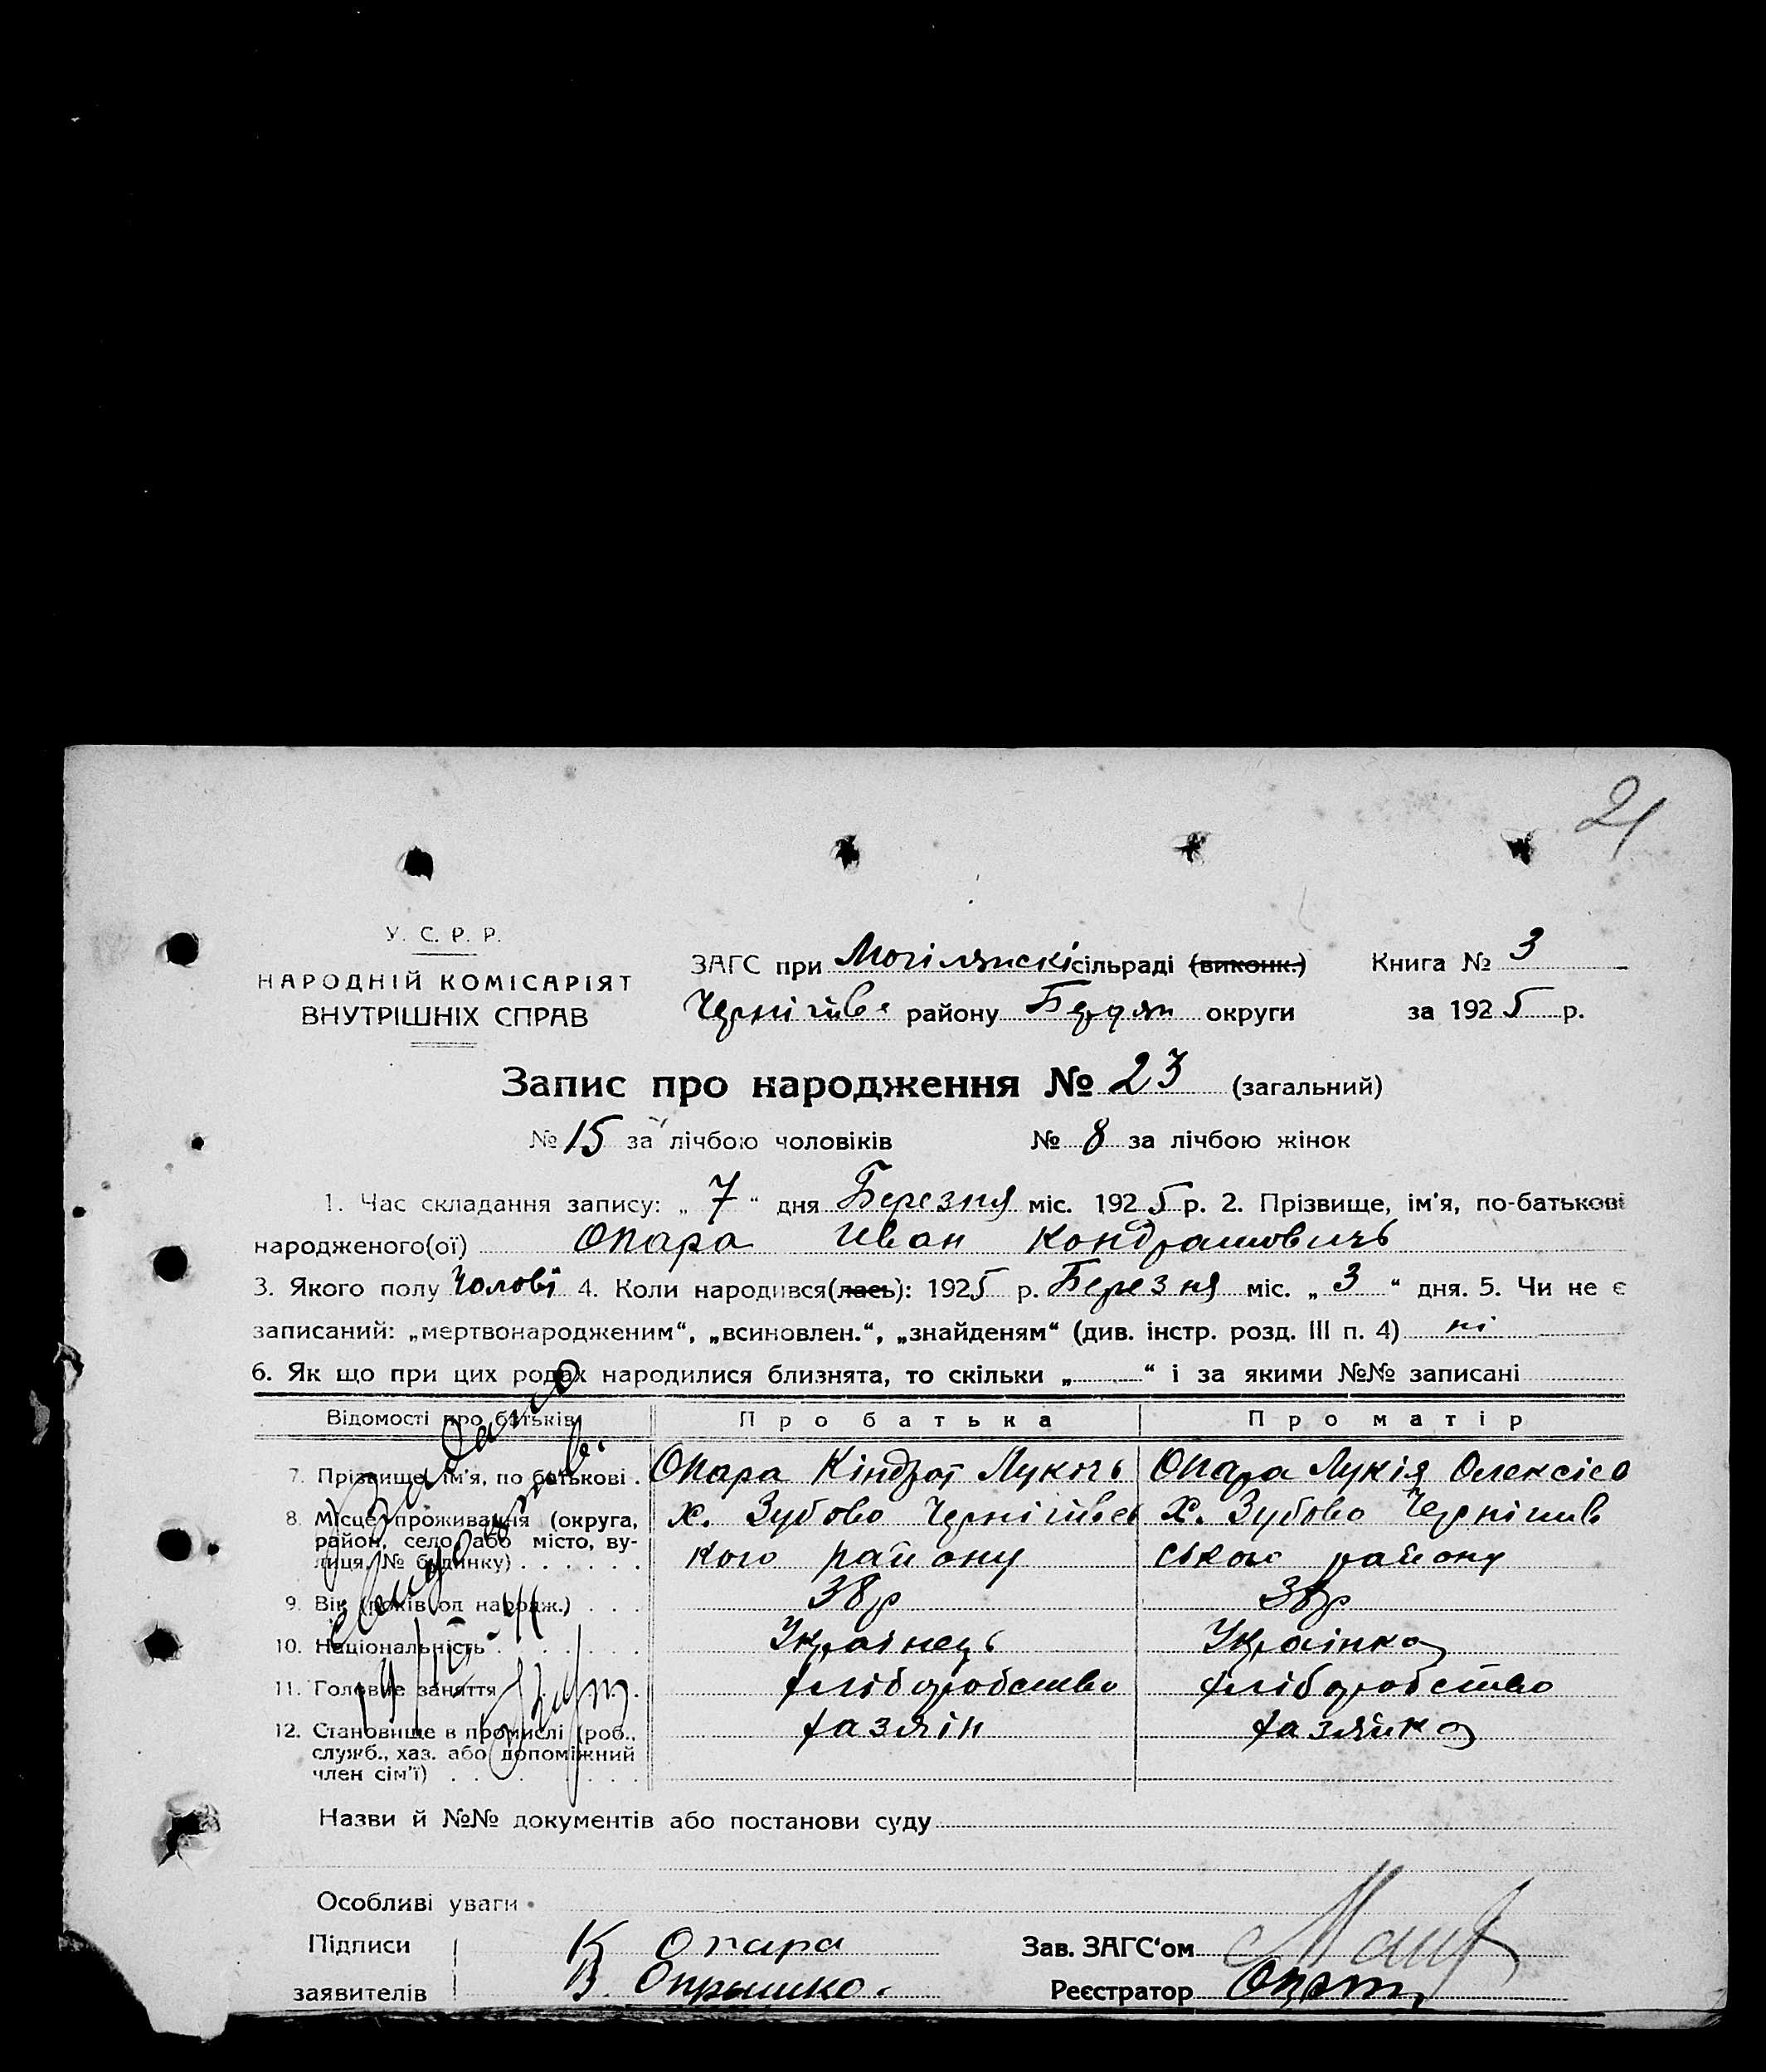 21
У. С. Р. Р.
НАРОДНІЙ КОМІСАРІЯТ
ВНУТРІШНІХ СПРАВ
ЗАГС при Могілянскі сільраді (виконк.) Книга № 3
Чернігівс району Бердян округи за 1925 р.
Запис про народження № 23 (загальний)
№ 15 за лічбою чоловіків № 8 за лічбою жінок
1. Час складання запису: „ 7 “ дня Березня міс. 1925 р. 2. Прізвище, ім'я, по-батькові
народженого(ої) Опара Иван Кондратовичь
3. Якого полу Чолові 4. Коли народився(лась): 1925 р. Березня міс. „ 3 “ дня. 5. Чи не є
записаний: „мертвонародженим“, „всиновлен.“, „знайденям“ (див. інстр. розд. III п. 4) ні
6. Як що при цих родах народилися близнята, то скільки „ “ і за якими №№ записані
Відомості про батьків Про батька Про матір
7. Прізвище, ім'я, по батькові . Опара Кіндрат Лукичь Опара Лукія Олексієв
8. Місце проживання (округа, х. Зубово Чернігівсь х. Зубово Чернігив
район, село, або місто, ву-
лиця, № будинку) . . . . . . кого району ського району
9. Вік (років од народж.) . . . 38р 38р
10. Національність . . . . . . Українець Українка
11. Головне заняття хліборобство хліборобство
12. Становище в промислі (роб., хазяін хазяйка
служб., хаз. або допоміжний
член сім'ї) . . . . . .
Назви й №№ документів або постанови суду
Особливі уваги
Підписи К Опара Зав. ЗАГС‘ом
заявителів В. Опришко. Реєстратор